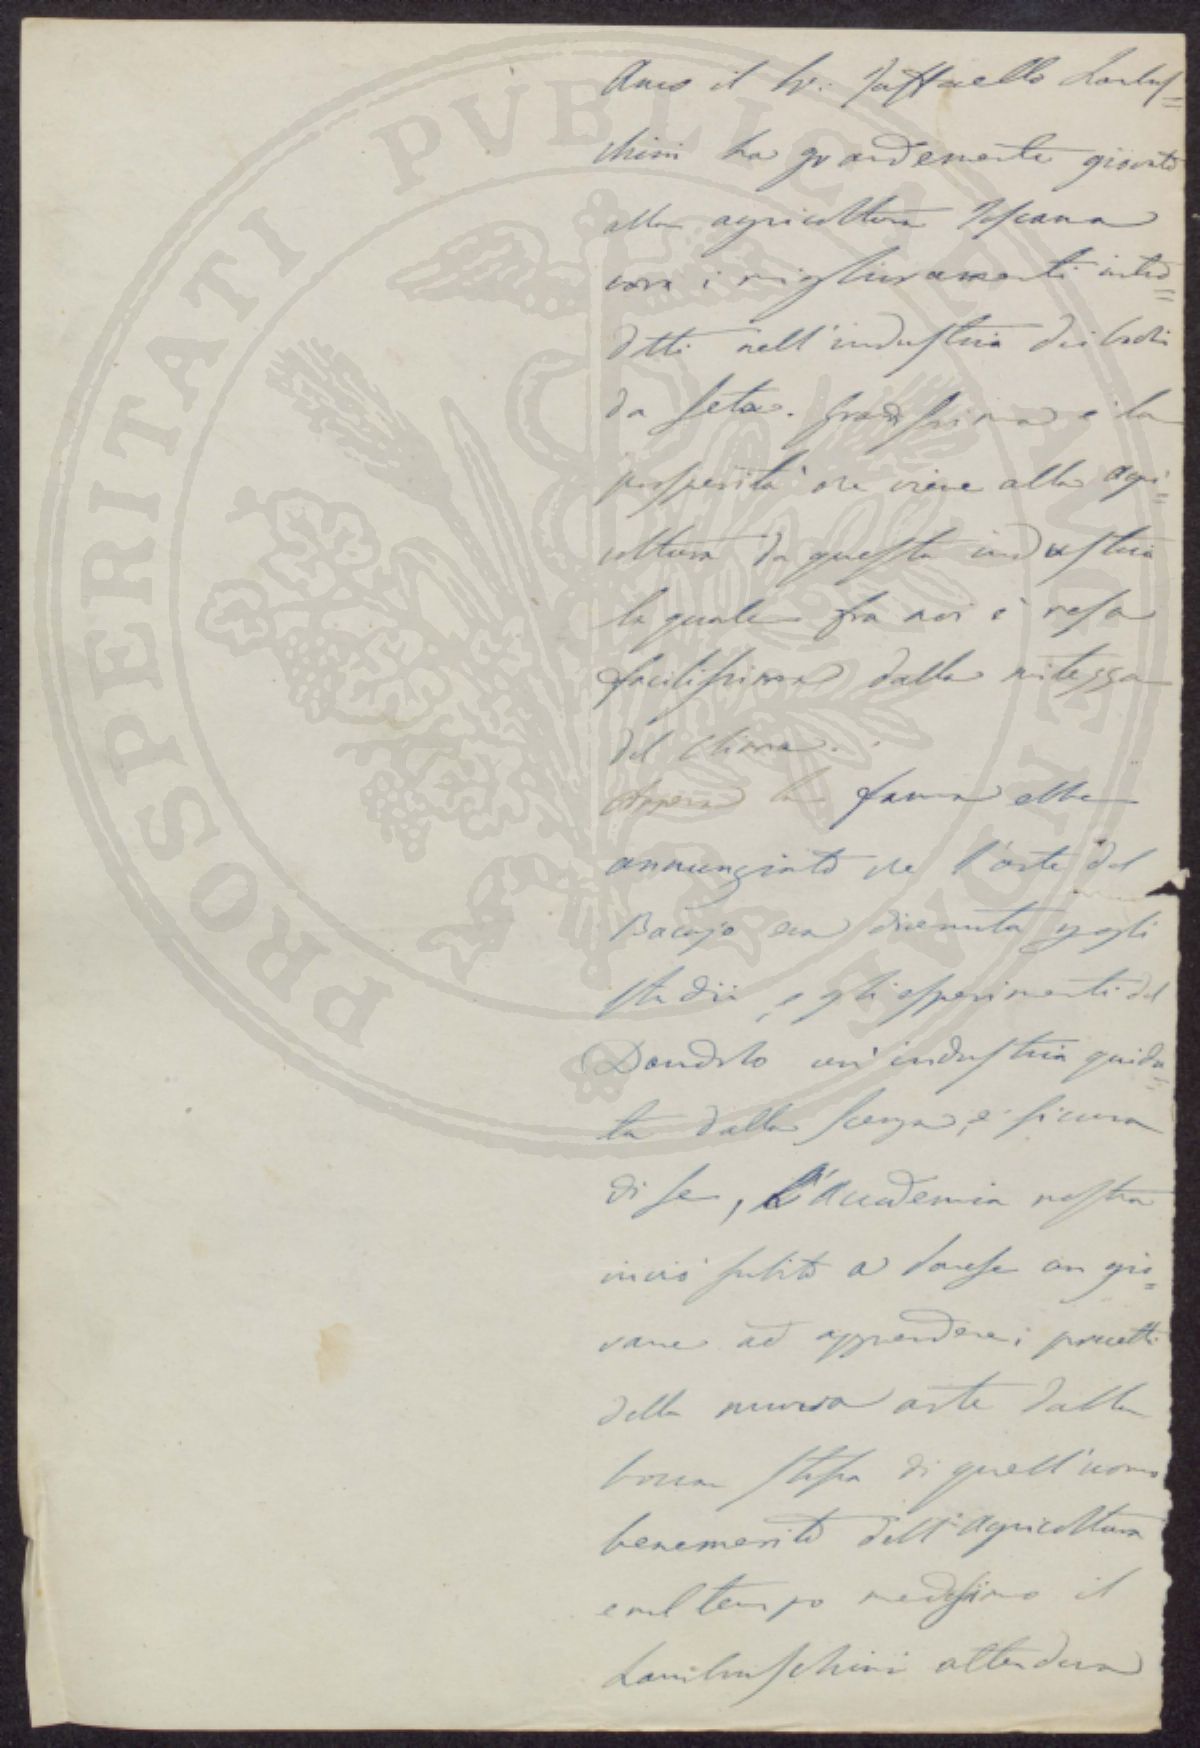 PROSPERITATI PUBLICAE AUGENDAE
Anco il Sr: Raffaello Lambus=
chini ha grandemente giovato
alla agricoltura Toscana
con i miglioramenti intro=
dotti nell'industria dei bachi
da seta. Grandissima è la
prosperità che viene alla agri=
coltura da questa industria
la quale fra noi è resa
facilissima dalla mitezza
del clima.
Appena la fama ebbe
annunziato che l'arte del
Bacajo era divenuta per gli
studii, e gli esperimenti del
Dandolo un'industria guida=
ta dalla scenza, e sicura
di se, l'Accademia nostra
inviò subito a Varese un gio=
vane ad apprendere i precetti
della nuova arte dalla
bocca stessa di quell'uomo
benemerito dell'Agricoltura
e nel tempo medesimo il
Lambruschini attendeva